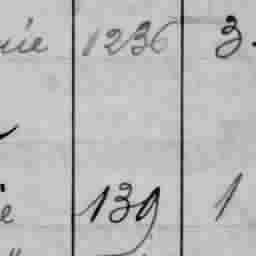 nie 1236 3.
e 139 1